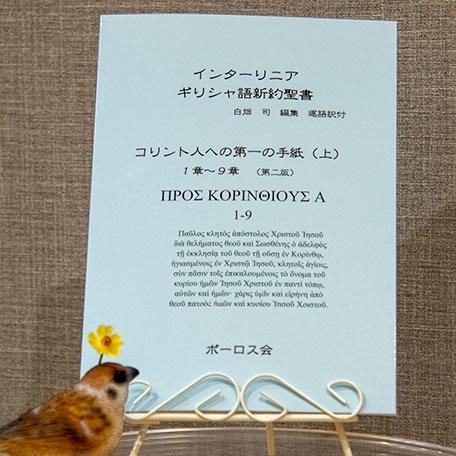 インターリニア
ギリシャ語新約聖書
白畑 司 編集 逐語訳付
コリント人への第一の手紙（上）
1章～9章 （第二版）
ΠΡΟΣ ΚΟΡΙΝΘΙΟΥΣ Α
1-9
Παῦλος κλητὸς ἀπόστολος Χριστοῦ Ἰησοῦ
διὰ θελήματος θεοῦ καὶ Σωσθένης ὁ ἀδελφὸς
τῇ ἐκκλησίᾳ τοῦ θεοῦ τῇ οὔσῃ ἐν Κορίνθῳ,
ἡγιασμένοις ἐν Χριστῷ Ἰησοῦ, κλητοῖς ἁγίοις,
σὺν πᾶσιν τοῖς ἐπικαλουμένοις τὸ ὄνομα τοῦ
κυρίου ἡμῶν Ἰησοῦ Χριστοῦ ἐν παντὶ τόπῳ,
αὐτῶν καὶ ἡμῶν· χάρις ὑμῖν καὶ εἰρήνη ἀπὸ
θεοῦ πατρὸς ἡμῶν καὶ κυρίου Ἰησοῦ Χριστοῦ.
ポーロス会